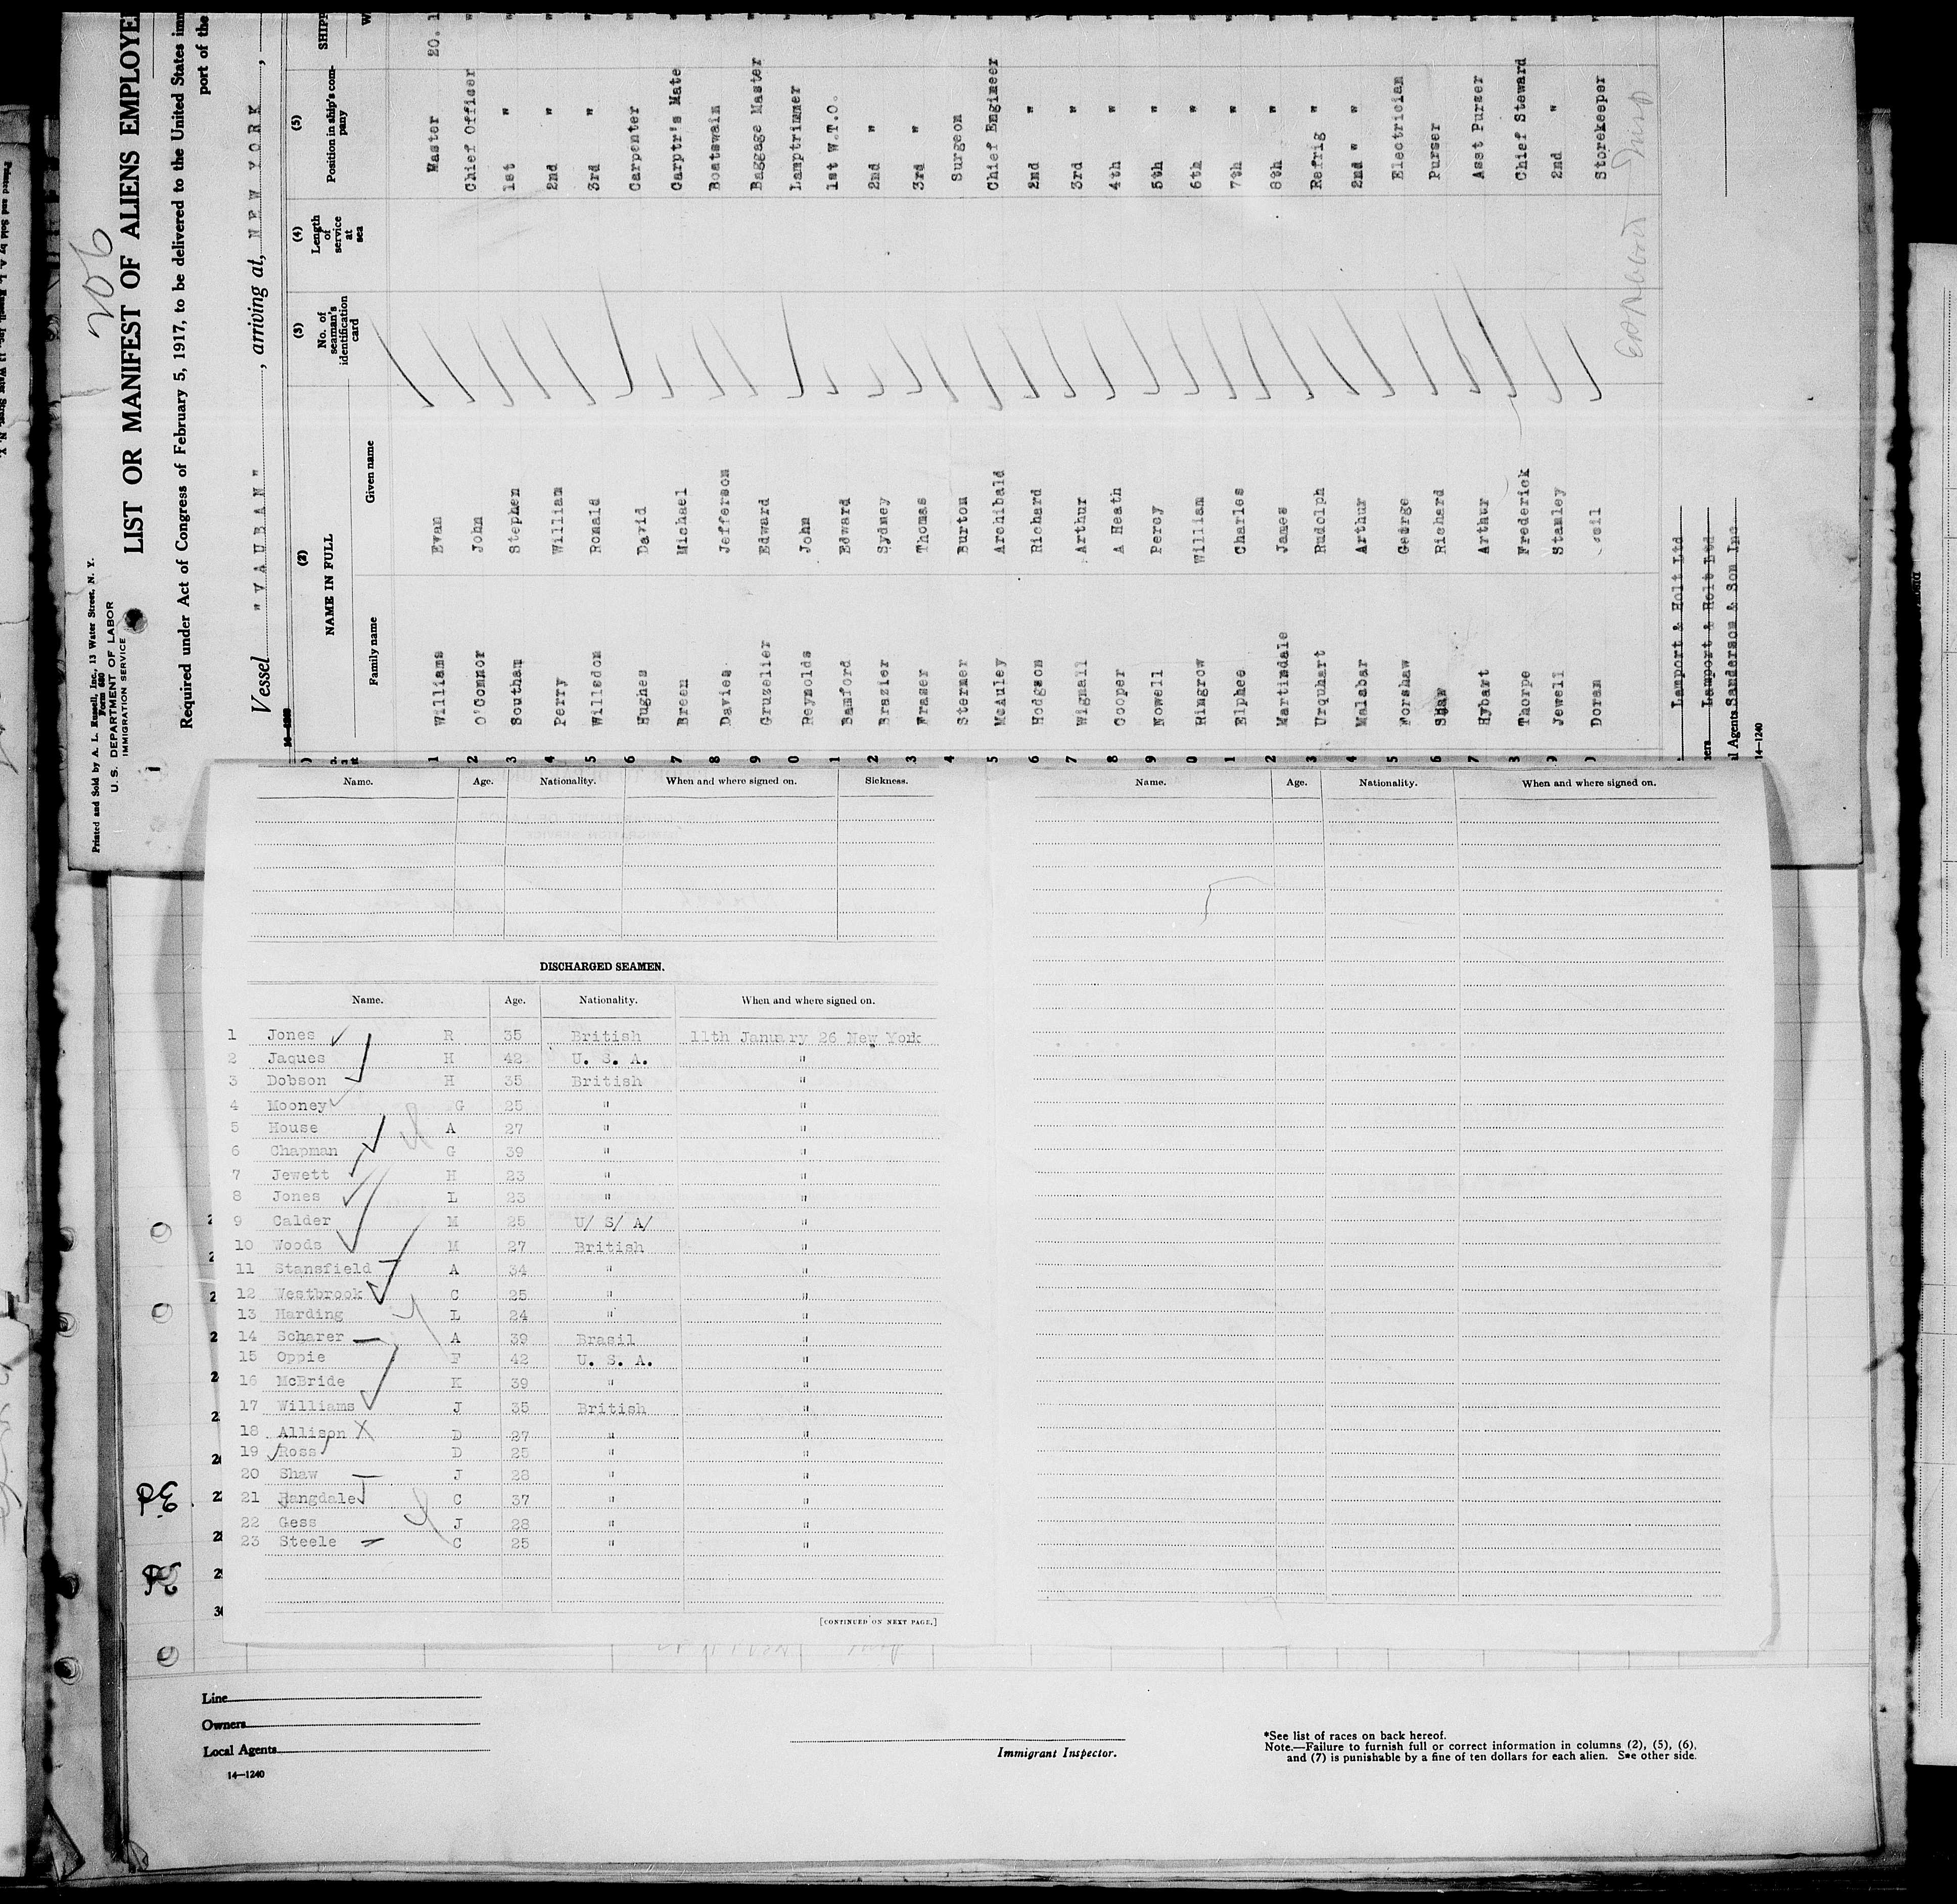 Printed and Sold by A. L. Russell, Inc., 13 Water Street, N. Y.
Form 680
U. S. DEPARTMENT OF LABOR
IMMIGRATION SERVICE
206
LIST OR MANIFEST OF ALIENS EMPLOYE
Required under Act of Congress of February 5, 1917, to be delivered to the United States im
port of the
Vessel "VAUBAN", arriving at, NEW YORK,
(2) (3) (4) (5)
NAME IN FULL No. of seaman's identification card Length of service at sea Position in ship's company SHIPP
Family name Given name W
1 Williams Evan Master 20. 1
2 O'Connor John Chief Officer "
3 Southam Stephen 1st " "
4 Perry William 2nd " "
5 Willsdon Ronald 3rd " "
6 Hughes David Carpenter "
7 Breen Michael Carptr's Mate "
8 Davies Jefferson Boatswain "
9 Gruzelier Edward Baggage Master "
0 Reynolds John Lamptrimmer "
1 Bamford Edward 1st W.T.O. "
2 Brazier Sydney 2nd " "
3 Fraser Thomas 3rd " "
4 Stermer Burton Surgeon "
5 McAuley Archibald Chief Engineer "
6 Hodgson Richard 2nd " "
7 Wignall Arthur 3rd " "
8 Cooper A Heath 4th " "
9 Nowell Percy 5th " "
0 Ringrow William 6th " "
1 Elphee Charles 7th " "
2 Martindale James 8th " "
3 Urquhart Rudolph Refrig " "
4 Malabar Arthur 2nd " " "
5 Forshaw George Electrician "
6 Shaw Richard Purser "
7 Hybart Arthur Asst Purzer "
8 Thorpe Frederick Chief Steward "
9 Jewell Stanley 2nd " "
0 Doran Storekeeper "
Lamport & Holt Ltd
ners Lamport & Holt Ltd
l Agents Sanderson & Son Inc
14—1240
Name. Age. Nationality. When and where signed on. Sickness.
Name. Age. Nationality. When and where signed on.
DISCHARGED SEAMEN.
Name. Age. Nationality. When and where signed on.
1 Jones R 35 British 11th January 26 New York
2 Jaques H 42 U. S. A. "
3 Dobson H 35 British "
4 Mooney G 25 " "
5 House A 27 " "
6 Chapman G 39 " "
7 Jewett H 23 " "
8 Jones L 23 " "
9 Calder M 25 U/ S/ A/ "
10 Woods M 27 British "
11 Stansfield A 34 " "
12 Westbrook C 25 " "
13 Harding L 24 " "
14 Scharer A 39 Brasil "
15 Oppie F 42 U. S. A. "
16 McBride K 39 " "
17 Williams J 35 British "
18 Allison D 27 " "
19 Ross D 25 " "
20 Shaw J 28 " "
21 Hangdale C 37 " "
22 Gess J 28 " "
23 Steele C 25 " "
[CONTINUED ON NEXT PAGE.]
Line
Owners
Local Agents
14—1240
Immigrant Inspector.
*See list of races on back hereof.
Note.—Failure to furnish full or correct information in columns (2), (5), (6),
and (7) is punishable by a fine of ten dollars for each alien. See other side.